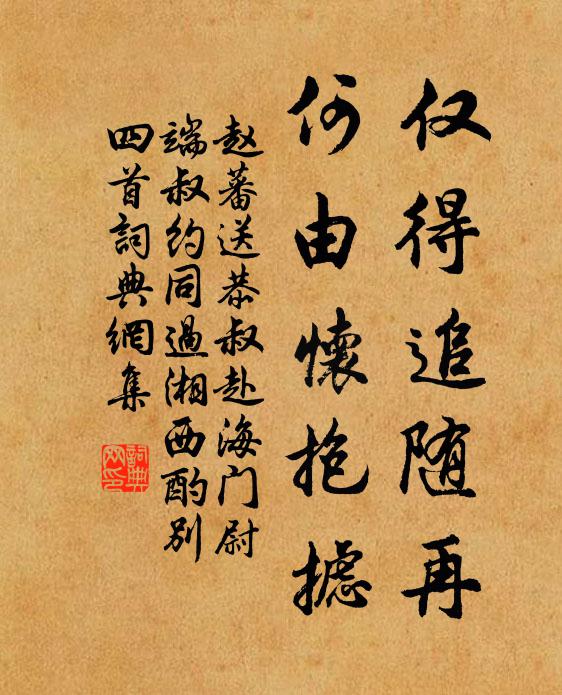 仅得追随再
何由懷抱攄
赵蕃送恭叔赴海门尉
端叔约同過湘西酌别
四首詞典網集
詞典
网印